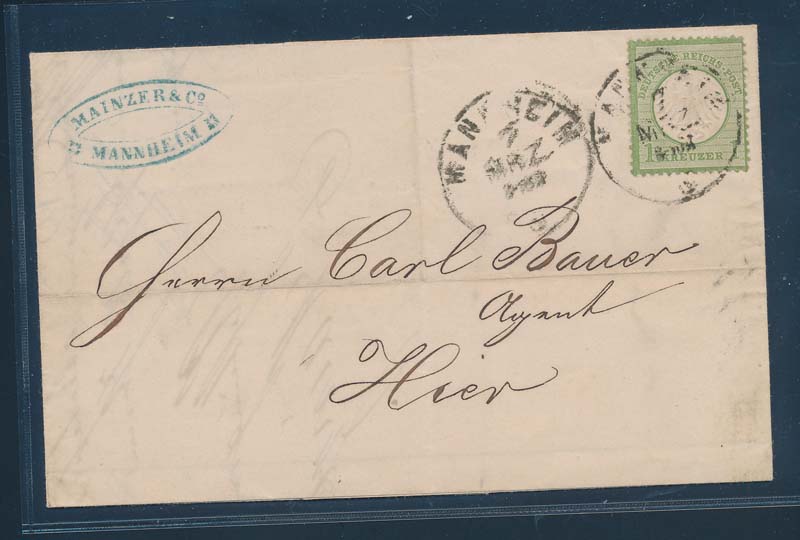 MAINZER & Co
MANNHEIM
MANNHEIM
MRZ
DEUTSCHE REICHS-POST
KREUZER
Herrn Carl Bauer
Agent
Hier